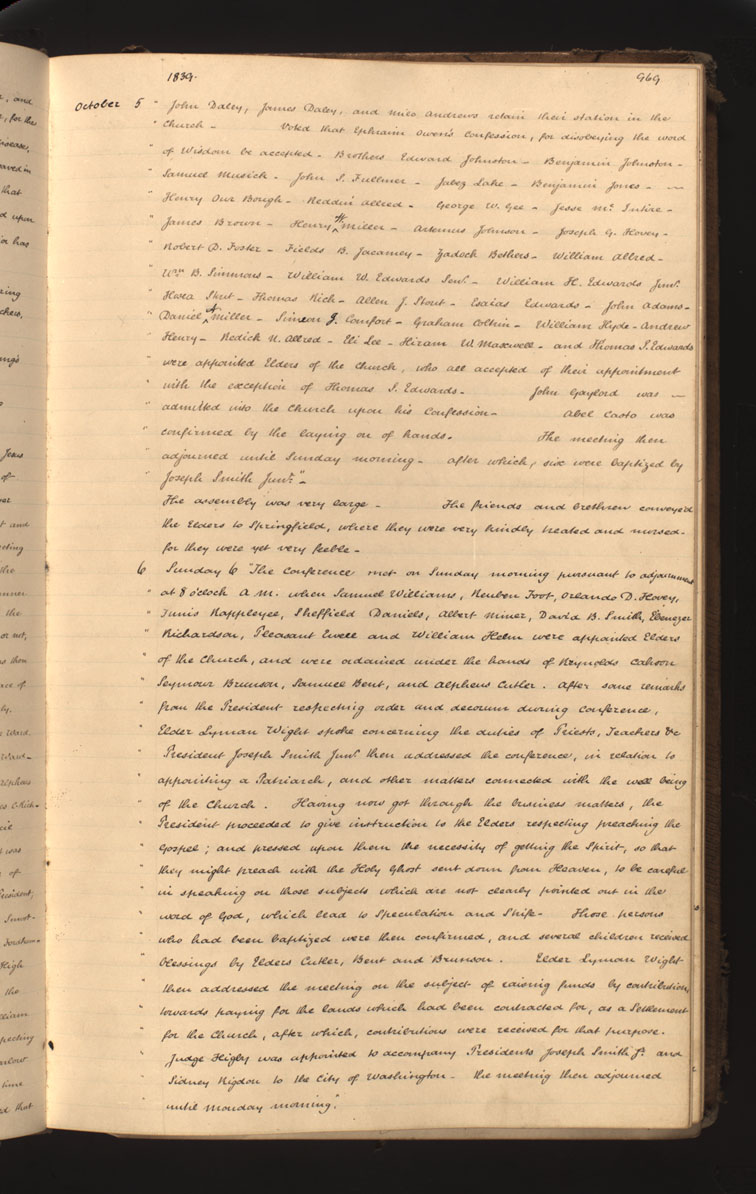 1839.
969
October 5 " John Daley, James Daley, and Miles Andrews retain their station in the
" Church – Voted that Ephraim Owen's Confession, for disobeying the word
" of Wisdom be accepted – Brothers Edward Johnston – Benjamin Johnston –
" Samuel Musick – John S. Fullmer – Jabez Lake – Benjamin Jones – —
" Henry Our Bough – Reddin Allred – George W. Gee – Jesse Mc. Intire –
" James Brown – Henry W. Miller – Artemus Johnson – Joseph G. Hovey –
" Robert D. Foster – Fields B. Jacaway – Zadock Bethers – William Allred –
" Wm. B. Simmons – William W. Edwards Senr. – William H. Edwards Junr.
" Hosea Stout – Thomas Rich – Allen J. Stout – Esaias Edwards – John Adams –
" Daniel A Miller – Simeon J. Comfort – Graham Coltrin – William Hyde – Andrew
" Henry – Redick N. Allred – Eli Lee – Hiram W. Maxwell – and Thomas S. Edwards
" were appointed Elders of the Church, who all accepted of their appointment
" with the exception of Thomas S. Edwards. John Gaylord was —
" admitted into the Church upon his Confession – Abel Casto was
" confirmed by the laying on of hands. The meeting then
" adjourned until Sunday morning – after which, six were baptized by
" Joseph Smith Junr." –
The assembly was very large – The friends and brethren conveyed
the Elders to Springfield, where they were very kindly treated and nursed –
for they were yet very feeble –
6 Sunday 6 "The Conference met on Sunday morning pursuant to adjournment
" at 8 o'clock A M. when Samuel Williams, Reuben Foot, Orlando D. Hovey,
" Tunis Rappleyee, Sheffield Daniels, Albert Miner, David B. Smith, Ebenezer
" Richardson, Pleasant Ewell and William Helm were appointed Elders
" of the Church, and were ordained under the hands of Reynolds Cahoon
" Seymour Brunson, Samuel Bent, and Alpheus Cutler. After some remarks
" from the President respecting order and decorum during Conference,
" Elder Lyman Wight spoke concerning the duties of Priests, Teachers &c
" President Joseph Smith Junr. then addressed the conference, in relation to
" appointing a Patriarch, and other matters connected with the well being
" of the Church. Having now got through the business matters, the
" President proceeded to give instruction to the Elders respecting preaching the
" Gospel; and pressed upon them the necessity of getting the Spirit, so that
" they might preach with the Holy Ghost sent down from Heaven, to be careful
" in speaking on those subjects which are not clearly pointed out in the
" word of God, which lead to Speculation and Strife – Those persons
" who had been baptized were then confirmed, and several children received
" blessings by Elders Cutler, Bent and Brunson. Elder Lyman Wight
" then addressed the meeting on the subject of raising funds by contribution,
" towards paying for the lands which had been contracted for, as a Settlement
" for the Church, after which, contributions were received for that purpose.
" Judge Higby was appointed to accompany Presidents Joseph Smith Jr. and
" Sidney Rigdon to the City of Washington – the meeting then adjourned
" until Monday morning."